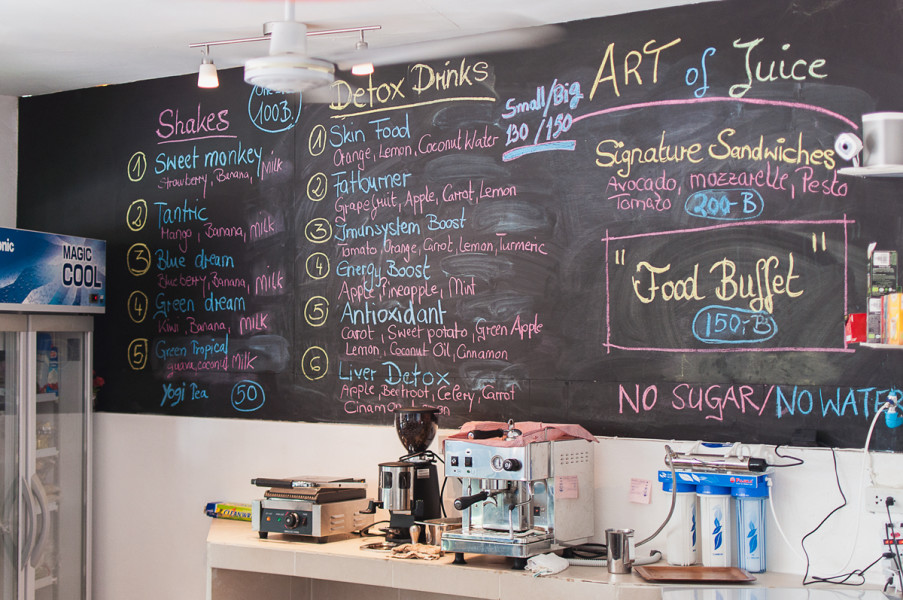 Shakes
100B.
1 Sweet monkey
Strawberry, Banana, Milk
2 Tantric
Mango, Banana, Milk
3 Blue dream
Blueberry, Banana, Milk
4 Green dream
Kiwi, Banana, Milk
5 Green Tropical
guava, coconut Milk
Yogi Tea 50
Detox Drinks
Small/Big
130/150
1 Skin Food
Orange, Lemon, Coconut Water
2 Fatburner
Grapefruit, Apple, Carrot, Lemon
3 Imunsystem Boost
Tomato, Orange, Carrot, Lemon, Turmeric
4 Energy Boost
Apple, Pineapple, Mint
5 Antioxidant
Carrot, Sweet potato, Green Apple
Lemon, Coconut Oil, Cinnamon
6 Liver Detox
Apple, Beetroot, Celery, Carrot
Cinamon
ART of Juice
Signature Sandwiches
Avocado, mozzarelle, Pesto
Tomato 200-B
"Food Buffet"
150-B
NO SUGAR/NO WATER
onic
MAGIC
COOL